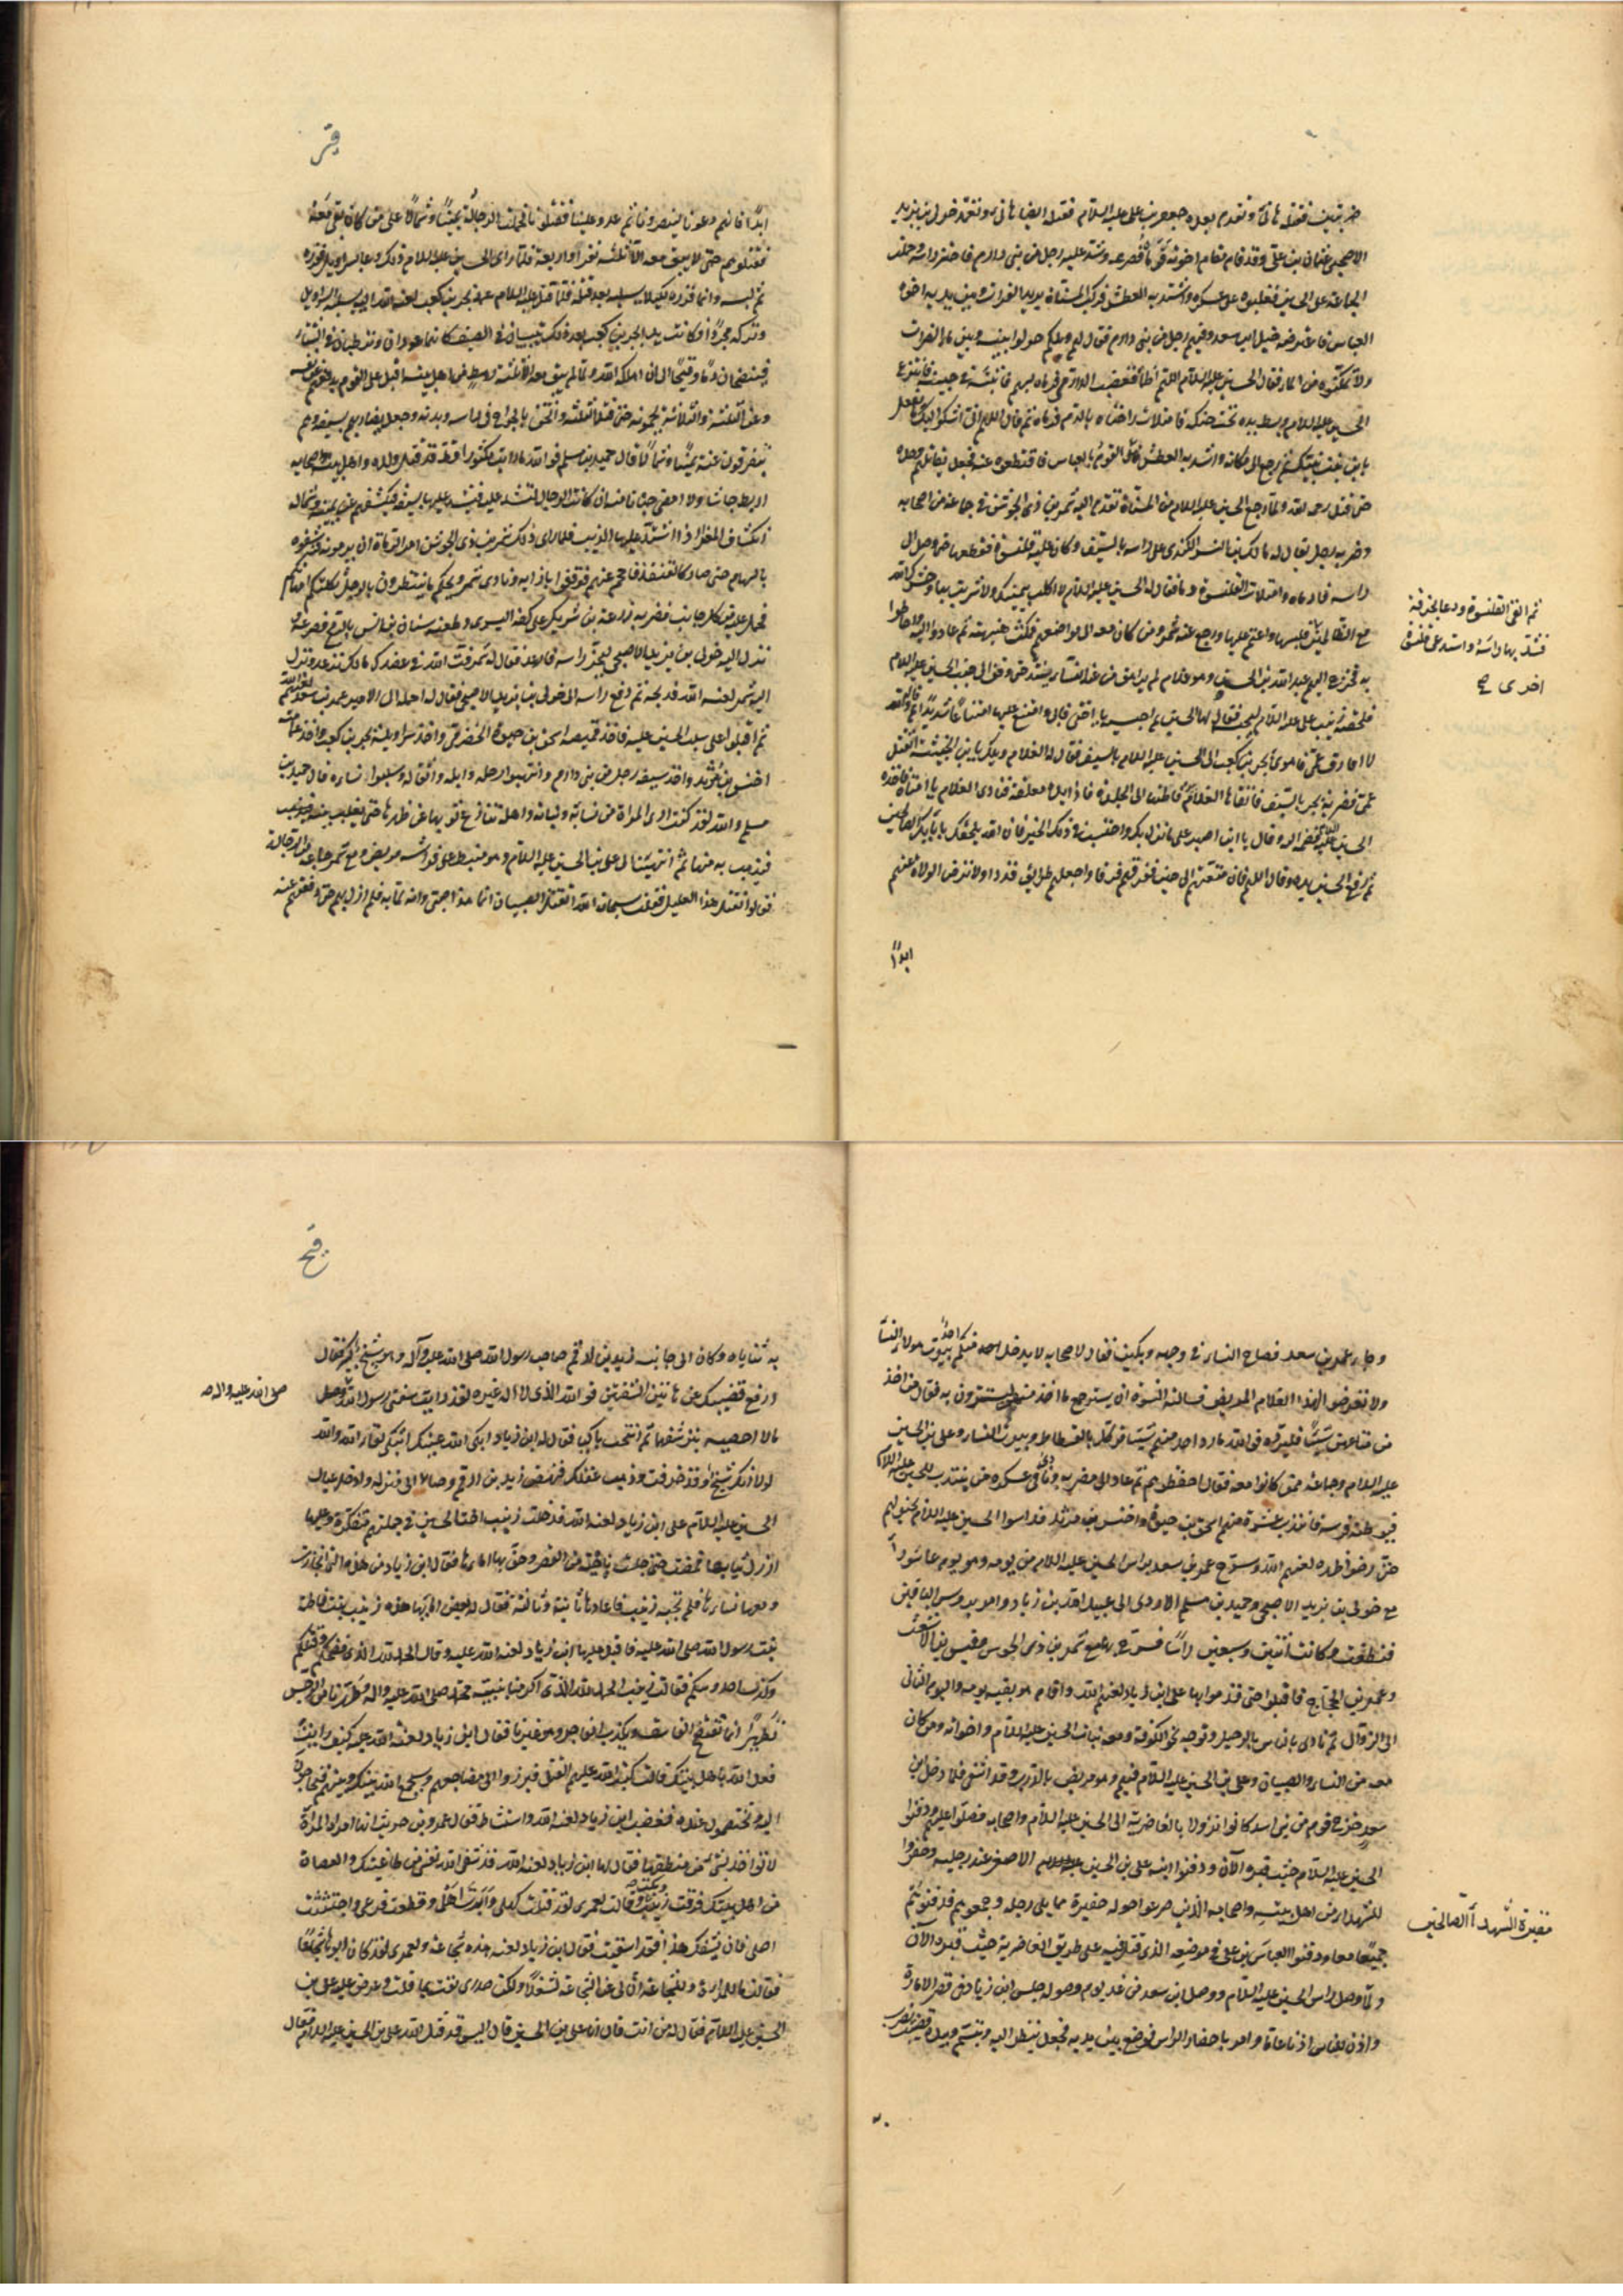 ضربتين فقتله هانئ وتقدم بعده جعفر بن علي عليه السلام فقتله ايضا هانئ وتعمد خولي بن يزيد
الاصبحي عثمان بن علي وقد قام مقام اخوته فرماه فصرعه وشد عليه رجل من بني دارم فاحتز راسه وحملت
الجماعة على الحسين فغلبوه على عسكره واشتد به العطش فركب المسناة يريد الفرات وبين يديه اخوه
العباس فاعترضه خيل ابن سعد وفيهم رجل من بني دارم فقال لهم ويلكم حولوا بينه وبين ماء الفرات
ولا تمكنوه من الماء فقال الحسين عليه السلام اللهم اظمأه فغضب الدارمي فرماه بسهم فاثبته في حنكه فانتزع
الحسين عليه السلام وبسط يده تحت حنكه فامتلات راحتاه بالدم فرماه ثم قال اللهم اني اشكو اليك ما يفعل
بابن بنت نبيك ثم رجع الى مكانه واشتد به العطش واحاط القوم بالعباس فاقتطعوه عنه فجعل يقاتلهم وحده
حتى قتل رحمه الله ولما رجع الحسين عليه السلام من المسناة تقدم اليه شمر بن ذي الجوشن في جماعة من اصحابه
وضربه رجل يقال له مالك بن النسر الكندي على راسه بالسيف وكان عليه قلنسوة فقطعها حتى وصل الى
راسه فادماه وامتلات القلنسوة دما فقال له الحسين عليه السلام لا اكلت بيمينك ولا شربت بها وحشرك الله
مع الظالمين فلبسها واعتم عليها ورجع عنه شمر ومن كان معه الى مواضعهم فمكث هنيهة ثم عاد وعادوا اليه واحاطوا
به فخرج اليهم عبد الله بن الحسن وهو غلام لم يراهق من عند النساء يشتد حتى وقف الى جنب الحسين عليه السلام
فلحقته زينب بنت علي عليه السلام لتحبسه فقال لها الحسين احبسيه يا اختي فابى وامتنع عليها امتناعا شديدا وقال والله
لا افارق عمي فاهوى ابجر بن كعب الى الحسين عليه السلام بالسيف فقال له الغلام ويلك يا بن الخبيثة اتقتل
عمي فضربه ابجر بالسيف فاتقاها الغلام بيده فاطنها الى الجلدة فاذا يده معلقة فنادى الغلام يا امتاه فاخذه
الحسين عليه السلام فضمه اليه وقال يا ابن اخي اصبر على ما نزل بك واحتسب في ذلك الخير فان الله يلحقك بابائك الصالحين
ثم رفع الحسين يده وقال اللهم فان متعتهم الى حين ففرقهم فرقا واجعلهم طرائق قددا ولا ترض الولاة عنهم
ابدا
ثم القى القلنسوة ودعا بخرقة
فشد بها راسه واستدعى قلنسوة
اخرى صح
قز
ابدا فانهم دعونا لينصرونا ثم عدوا علينا فقتلونا فحملت الرجالة يمينا وشمالا على من كان بقي معه
فقتلوهم حتى لم يبق معه الا ثلثة نفر او اربعة فلما راى الحسين عليه السلام ذلك دعا بسراويل ففزره
ثم لبسه وانما فزره لكيلا يسلبه بعد قتله فلما قتل عليه السلام عمد ابجر بن كعب لعنه الله اليه يسلبه السراويل
وتركه مجردا وكانت يدا ابجر بن كعب بعد ذلك تيبسان في الصيف كانهما عودان وترطبان في الشتاء
فينضحان دما وقيحا الى ان اهلكه الله ولما لم يبق معه الا ثلثة رهط من اهل بيته اقبل على القوم يدفعهم عن نفسه
وعن الثلثة والثلاثة يحمونه حتى قتل الثلثة واثخن بالجراح في راسه وبدنه وجعل يضاربهم بسيفه وهم
يتفرقون عنه يمينا وشمالا فقال حميد بن مسلم فوالله ما رايت مكثورا قط قد قتل ولده واهل بيته واصحابه
اربط جاشا ولا امضى جنانا منه ان كانت الرجال لتشد عليه فيشد عليها بسيفه فيكشفهم عن يمينه وشماله
انكشاف المعزى اذا اشتد عليها الذئب فلما راى ذلك شمر بن ذي الجوشن امر الرماة ان يرموه فرشقوه
بالسهام حتى صار كالقنفذ فاحجم عنهم فوقفوا بازائه ونادى شمر ويحكم ما تنتظرون بالرجل ثكلتكم امهاتكم
فحمل عليه من كل جانب فضربه زرعة بن شريك على كفه اليسرى وطعنه سنان بن انس بالرمح فصرعه
نزل اليه خولي بن يزيد الاصبحي ليجتز راسه فارعد فقال له شمر فت الله في عضدك ما لك ترعد ونزل
اليه شمر لعنه الله فذبحه ثم دفع راسه الى خولي بن يزيد الاصبحي فقال له احمله الى الامير عمر بن سعد
ثم اقبلوا على سلب الحسين عليه السلام فاخذ قميصه اسحق بن حيوة الحضرمي واخذ سراويله ابجر بن كعب واخذ عمامته
اخنس بن مرثد واخذ سيفه رجل من بني دارم وانتهبوا رحله وابله واثقاله وسلبوا نساءه قال حميد بن
مسلم والله لقد كنت ارى المراة من نسائه وبناته واهله تنازع ثوبها عن ظهرها حتى تغلب عليه
فيذهب به منها ثم انتهينا الى علي بن الحسين عليه السلام وهو منبسط على فراشه مريض ومع شمر جماعة من الرجالة
فقالوا نقتل هذا العليل فقلت سبحان الله ايقتل الصبيان انما هذا صبي وانه لما به فلم ازل بهم حتى دفعتهم عنه
وجاء عمر بن سعد فصاح النساء في وجهه وبكين فقال لاصحابه لا يدخل احد منكم بيوت هؤلاء النساء
ولا تعرضوا لهذا الغلام المريض فسالته النسوة ان يسترجع ما اخذ منهن ليستترن به فقال من اخذ
من متاعهن شيئا فليرده فوالله ما رد احد منهم شيئا فوكل بالفسطاط وبيوت النساء وعلي بن الحسين
عليه السلام وجماعة ممن كانوا معه فقال احفظوهم ثم عاد الى مضربه ونادى في عسكره من ينتدب للحسين عليه السلام
فيوطئه فرسه فانتدب عشرة منهم اسحق بن حيوة واخنس بن مرثد فداسوا الحسين عليه السلام بخيولهم
حتى رضوا ظهره لعنهم الله وسرح عمر بن سعد براس الحسين عليه السلام من يومه وهو يوم عاشوراء
مع خولي بن يزيد الاصبحي وحميد بن مسلم الازدي الى عبيد الله بن زياد وامر برؤس الباقين
فنظفت وكانت اثنين وسبعين راسا فسرح بها مع شمر بن ذي الجوشن وقيس بن الاشعث
وعمرو بن الحجاج فاقبلوا حتى قدموا بها على ابن زياد لعنهم الله واقام هو بقية يومه واليوم الثاني
الى الزوال ثم نادى بالناس بالرحيل وتوجه نحو الكوفة ومعه بنات الحسين عليه السلام واخواته ومن كان
معه من النساء والصبيان وعلي بن الحسين عليه السلام فيهم وهو مريض بالذرب وقد اشفى فلما رحل ابن
سعد خرج قوم من بني اسد كانوا نزولا بالغاضرية الى الحسين عليه السلام واصحابه فصلوا عليهم ودفنوا
الحسين عليه السلام حيث قبره الآن ودفنوا ابنه علي بن الحسين عليه السلام الاصغر عند رجليه وحفروا
للشهداء من اهل بيته واصحابه الذين صرعوا حوله حفيرة مما يلي رجليه وجمعوهم فدفنوهم
جميعا معا ودفنوا العباس بن علي في موضعه الذي قتل فيه على طريق الغاضرية حيث قبره الآن
ولما وصل راس الحسين عليه السلام ووصل ابن سعد من غد يوم وصوله جلس ابن زياد في قصر الامارة
واذن للناس اذنا عاما وامر باحضار الراس فوضع بين يديه فجعل ينظر اليه ويتبسم وبيده قضيب يضرب
به
مقبرة الشهداء الصالحين
قح
به ثناياه وكان الى جانبه زيد بن ارقم صاحب رسول الله صلى الله عليه وآله وهو شيخ كبير فقال
ارفع قضيبك عن هاتين الشفتين فوالله الذي لا اله غيره لقد رايت شفتي رسول الله
ما لا احصيه يترشفهما ثم انتحب باكيا فقال له ابن زياد ابكى الله عينيك اتبكي لفتح الله والله
لولا انك شيخ قد خرفت وذهب عقلك فنهض زيد بن ارقم وصار الى منزله وادخل عيال
الحسين عليه السلام على ابن زياد لعنه الله فدخلت زينب اخت الحسين في جملتهم متنكرة وعليها
ارذل ثيابها فمضت حتى جلست ناحية من القصر وحف بها اماؤها فقال ابن زياد من هذه التي انحازت
ومعها نساؤها فلم تجبه زينب فاعادها ثانية وثالثة فقال له بعض امائها هذه زينب بنت فاطمة
بنت رسول الله صلى الله عليه فاقبل عليها ابن زياد لعنة الله عليه وقال الحمد لله الذي فضحكم وقتلكم
وكذب احدوثتكم فقالت زينب الحمد لله الذي اكرمنا بنبيه محمد صلى الله عليه واله وطهرنا من الرجس
تطهيرا انما يفتضح الفاسق ويكذب الفاجر وهو غيرنا فقال ابن زياد لعنه الله كيف رايت
فعل الله باهل بيتك قالت كتب الله عليهم القتل فبرزوا الى مضاجعهم وسيجمع الله بينك وبينهم فتحاجون
اليه وتختصمون عنده فغضب ابن زياد لعنه الله واستشاط فقال عمرو بن حريث انها امراة والمراة
لا تواخذ بشئ من منطقها فقال لها ابن زياد لعنه الله قد شفى الله نفسي من طاغيتك والعصاة
من اهل بيتك فرقت زينب وبكت وقالت لعمري لقد قتلت كهلي وابدت اهلي وقطعت فرعي واجتثثت
اصلي فان يشفك هذا فقد اشتفيت فقال ابن زياد لعنه هذه شجاعة ولعمري لقد كان ابوها شجاعا
فقالت ما للمراة والشجاعة ان لي عن الشجاعة لشغلا ولكن صدري نفث بما قلت وعرض عليه علي بن
الحسين عليه السلام فقال له من انت قال انا علي بن الحسين قال اليس قد قتل الله علي بن الحسين عليه السلام فقال
صلى الله عليه واله